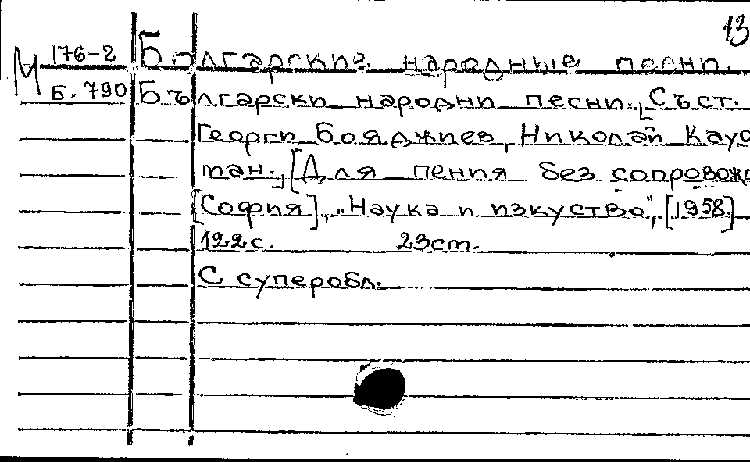 13
М 176-2 Болгарские народные песни.
Б. 790 Български народни песни. Съст.
Георги Бояджиев, Николай Кауф
ман. [Для пения без сопровож
[София], "Наука и изкуство", [1958]
122 с. 23 см.
С суперобл.